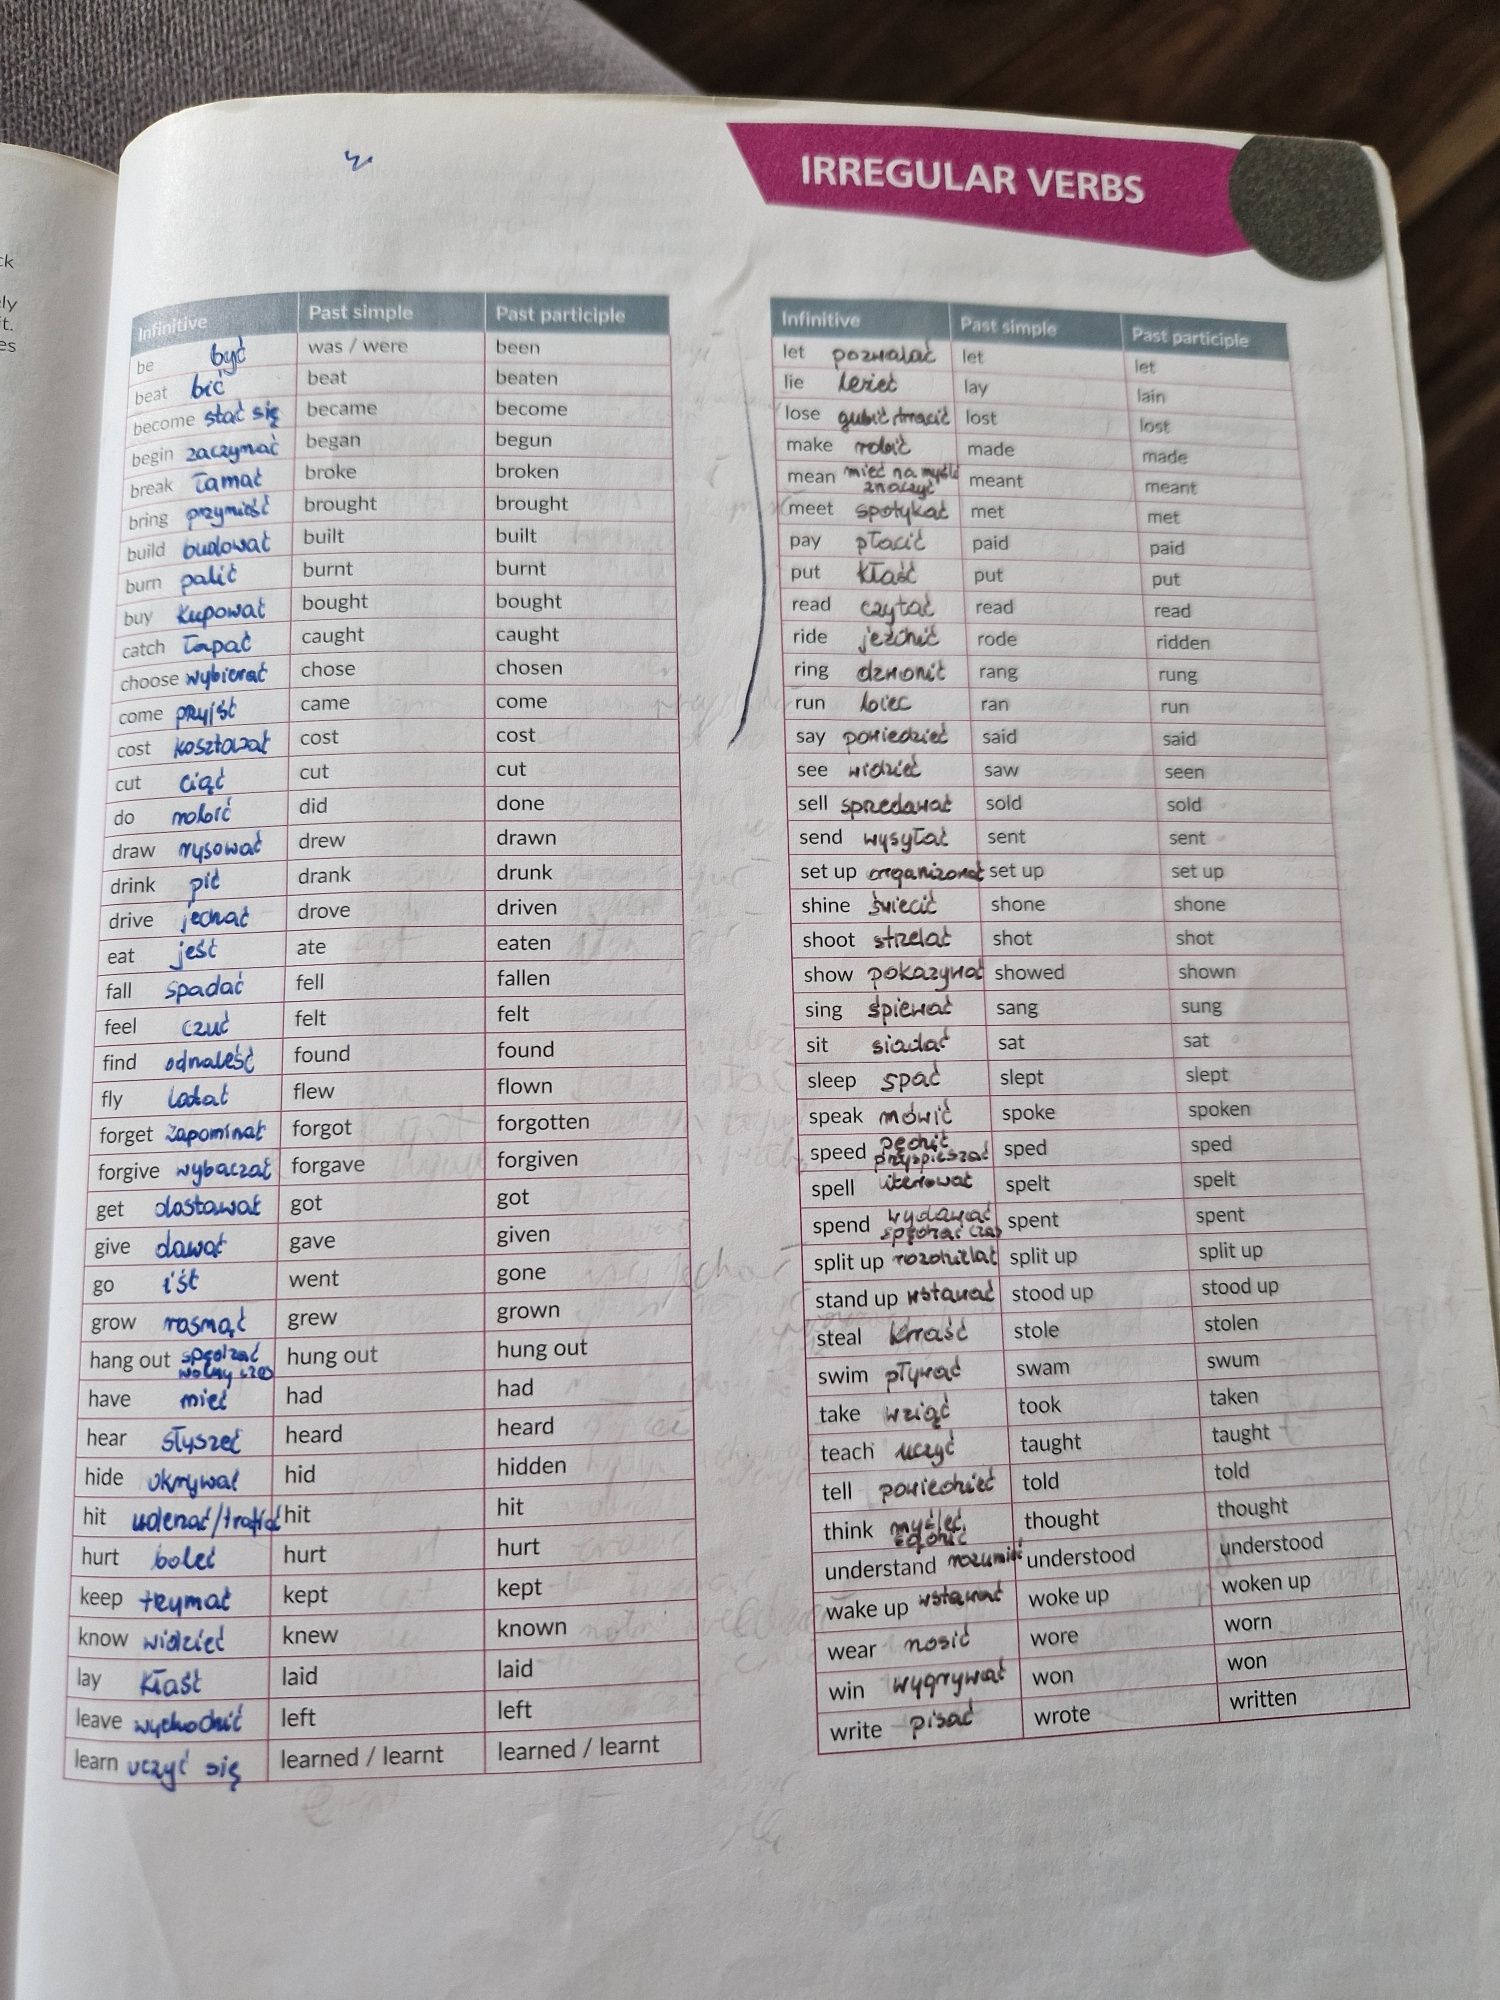 ck
ly
t.
es
IRREGULAR VERBS
Infinitive Past simple Past participle
be być was / were been
beat bić beat beaten
become stać się became become
begin zaczynać began begun
break łamać broke broken
bring przynieść brought brought
build budować built built
burn palić burnt burnt
buy kupować bought bought
catch łapać caught caught
choose wybierać chose chosen
come pryjść came come
cost kosztować cost cost
cut ciąć cut cut
do robić did done
draw rysować drew drawn
drink pić drank drunk
drive jechać drove driven
eat jeść ate eaten
fall spadać fell fallen
feel czuć felt felt
find odnaleść found found
fly latać flew flown
forget zapominać forgot forgotten
forgive wybaczać forgave forgiven
get dostawać got got
give dawać gave given
go iść went gone
grow rosnąć grew grown
hang out spędzać wolny czas hung out hung out
have mieć had had
hear słyszeć heard heard
hide ukrywać hid hidden
hit uderzać/trafić hit hit
hurt boleć hurt hurt
keep trzymać kept kept
know widzieć knew known
lay kłaść laid laid
leave wychodzić left left
learn uczyć się learned / learnt learned / learnt
Infinitive Past simple Past participle
let pozwalać let let
lie leżeć lay lain
lose gubić/tracić lost lost
make robić made made
mean mieć na myśli znaczyć meant meant
meet spotykać met met
pay płacić paid paid
put kłaść put put
read czytać read read
ride jeździć rode ridden
ring dzwonić rang rung
run biec ran run
say powiedzieć said said
see widzieć saw seen
sell sprzedawać sold sold
send wysyłać sent sent
set up organizować set up set up
shine świecić shone shone
shoot strzelać shot shot
show pokazywać showed shown
sing śpiewać sang sung
sit siadać sat sat
sleep spać slept slept
speak mówić spoke spoken
speed pędzić przyspieszać sped sped
spell literować spelt spelt
spend wydawać spędzać czas spent spent
split up rozdzielać split up split up
stand up wstawać stood up stood up
steal kraść stole stolen
swim pływać swam swum
take wziąć took taken
teach uczyć taught taught
tell powiedzieć told told
think myśleć sądzić thought thought
understand rozumieć understood understood
wake up wstawać woke up woken up
wear nosić wore worn
win wygrywać won won
write pisać wrote written